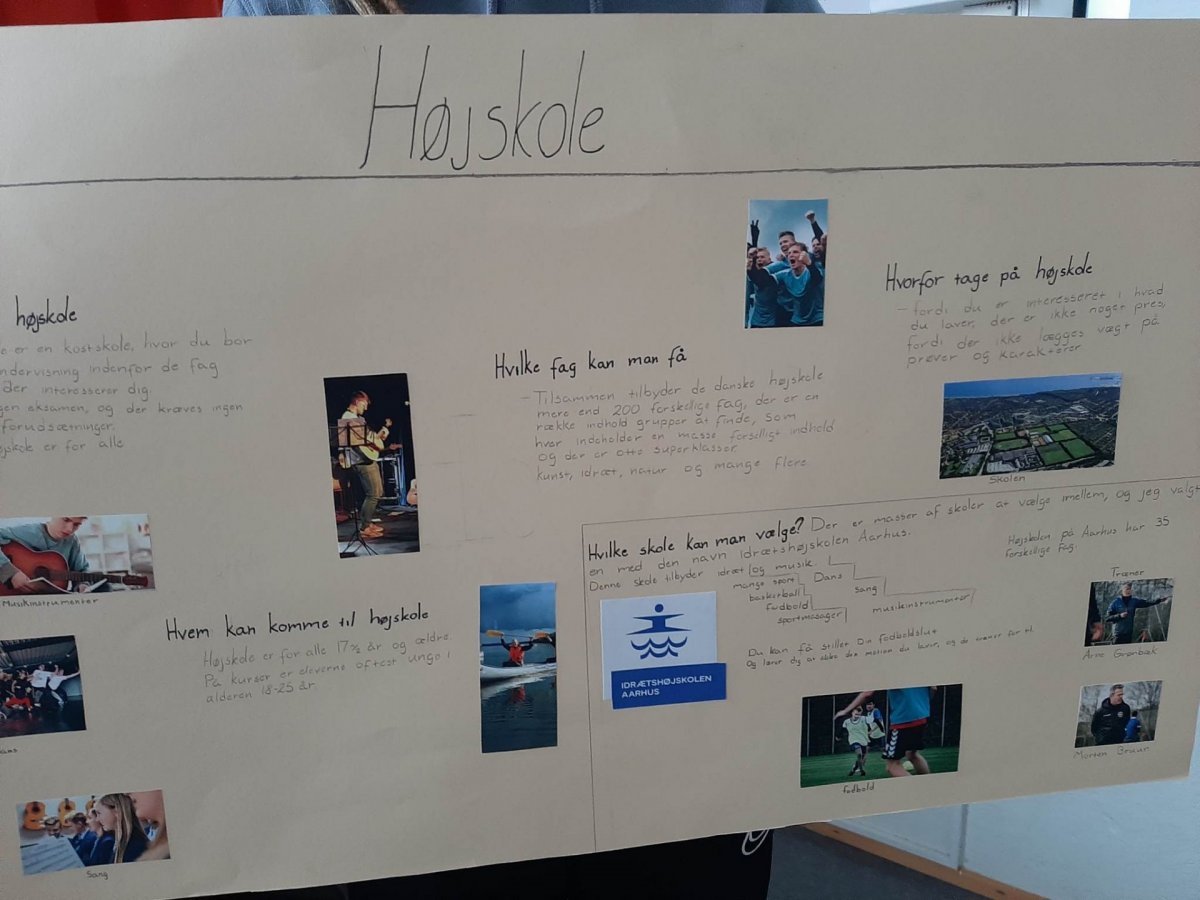 Højskole
højskole
e er en kostskole, hvor du bor
ndervisning indenfor de fag
der interesserer dig.
gen eksamen, og der kræves ingen
forudsætninger.
jskole er for alle
Musikinstrumenter
ans
Sang
Hvem kan komme til højskole
Højskole er for alle 17½ år og ældre.
På kurser er eleverne oftest unge i
alderen 18-25 år
Hvilke fag kan man få
- Tilsammen tilbyder de danske højskole
mere end 200 forskellige fag, der er en
række indhold grupper at finde, som
hver indeholder en masse forselligt indhold
og der er otte superklasser
kunst, idræt, natur og mange flere
Hvorfor tage på højskole
- fordi du er interesseret i hvad
du laver, der er ikke noget pres,
fordi der ikke lægges vægt på
prøver og karakterer
Skolen
Hvilke skole kan man vælge? Der er masser af skoler at vælge imellem, og jeg valgt
en med den navn Idrætshøjskolen Aarhus.
Denne skole tilbyder idræt og musik.
mange sport
basketball
fodbold
sportmasager
Dans
sang
musikinstrumenter
Højskolen på Aarhus har 35
forskellige fag.
IDRÆTSHØJSKOLEN
AARHUS
Du kan få stillet Din fodboldslut
Og lærer dig at elske den motion du laver, og de træner for til.
fodbold
Træner
Arne Grønbæk
Morten Bruun